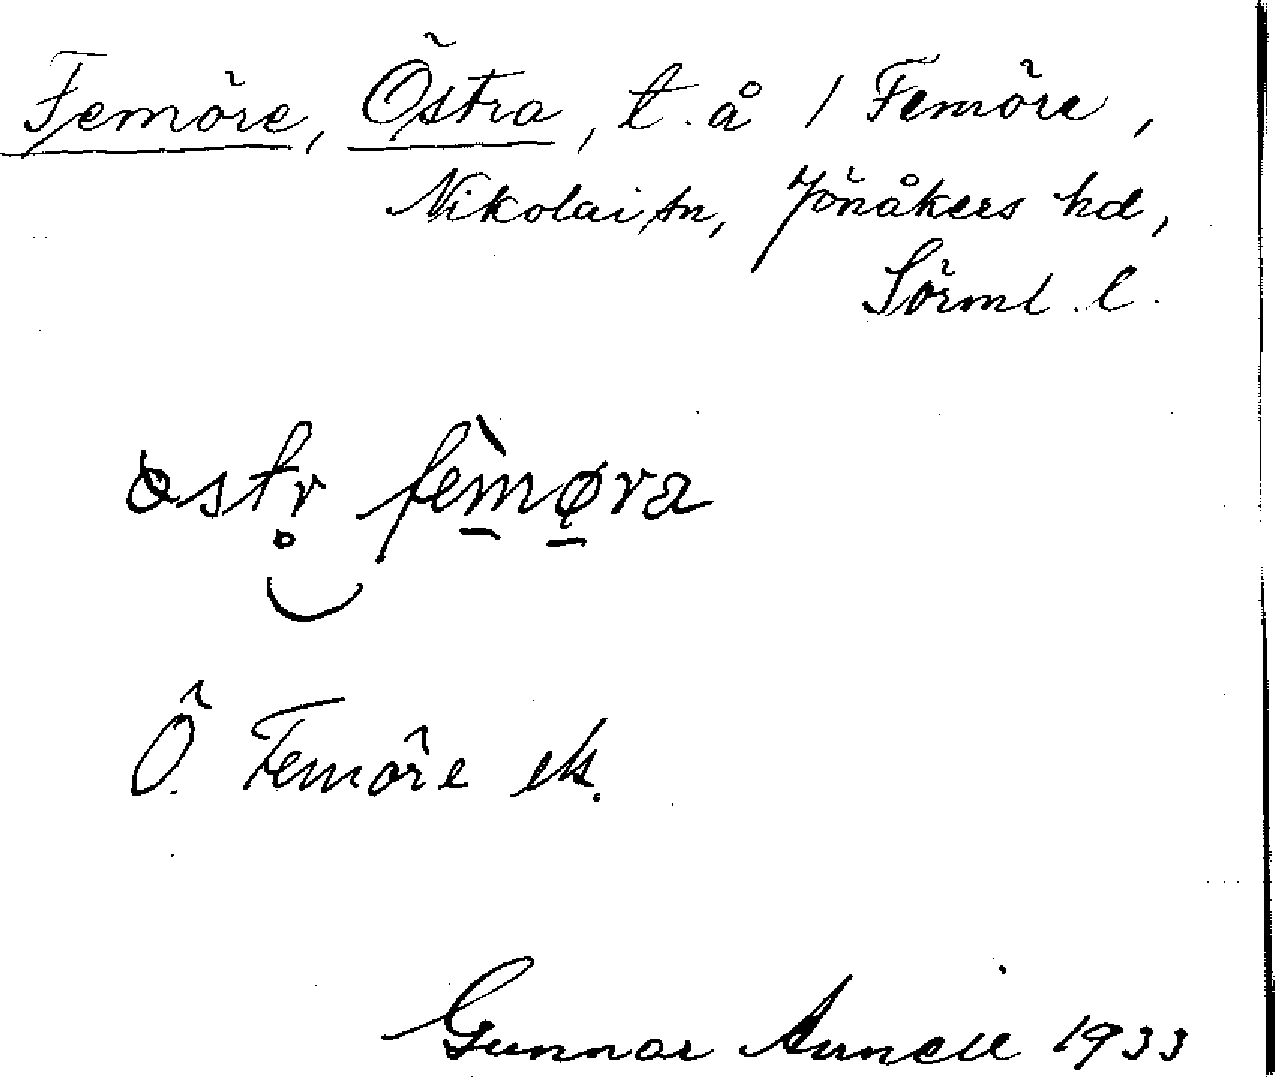 Femöre, Östra, t. å / Femöre,
Nikolai sn, Jönåkers hd,
Sörml. l.
østr femøra
Ö. Femöre ek.
Gunnar Arnell 1933